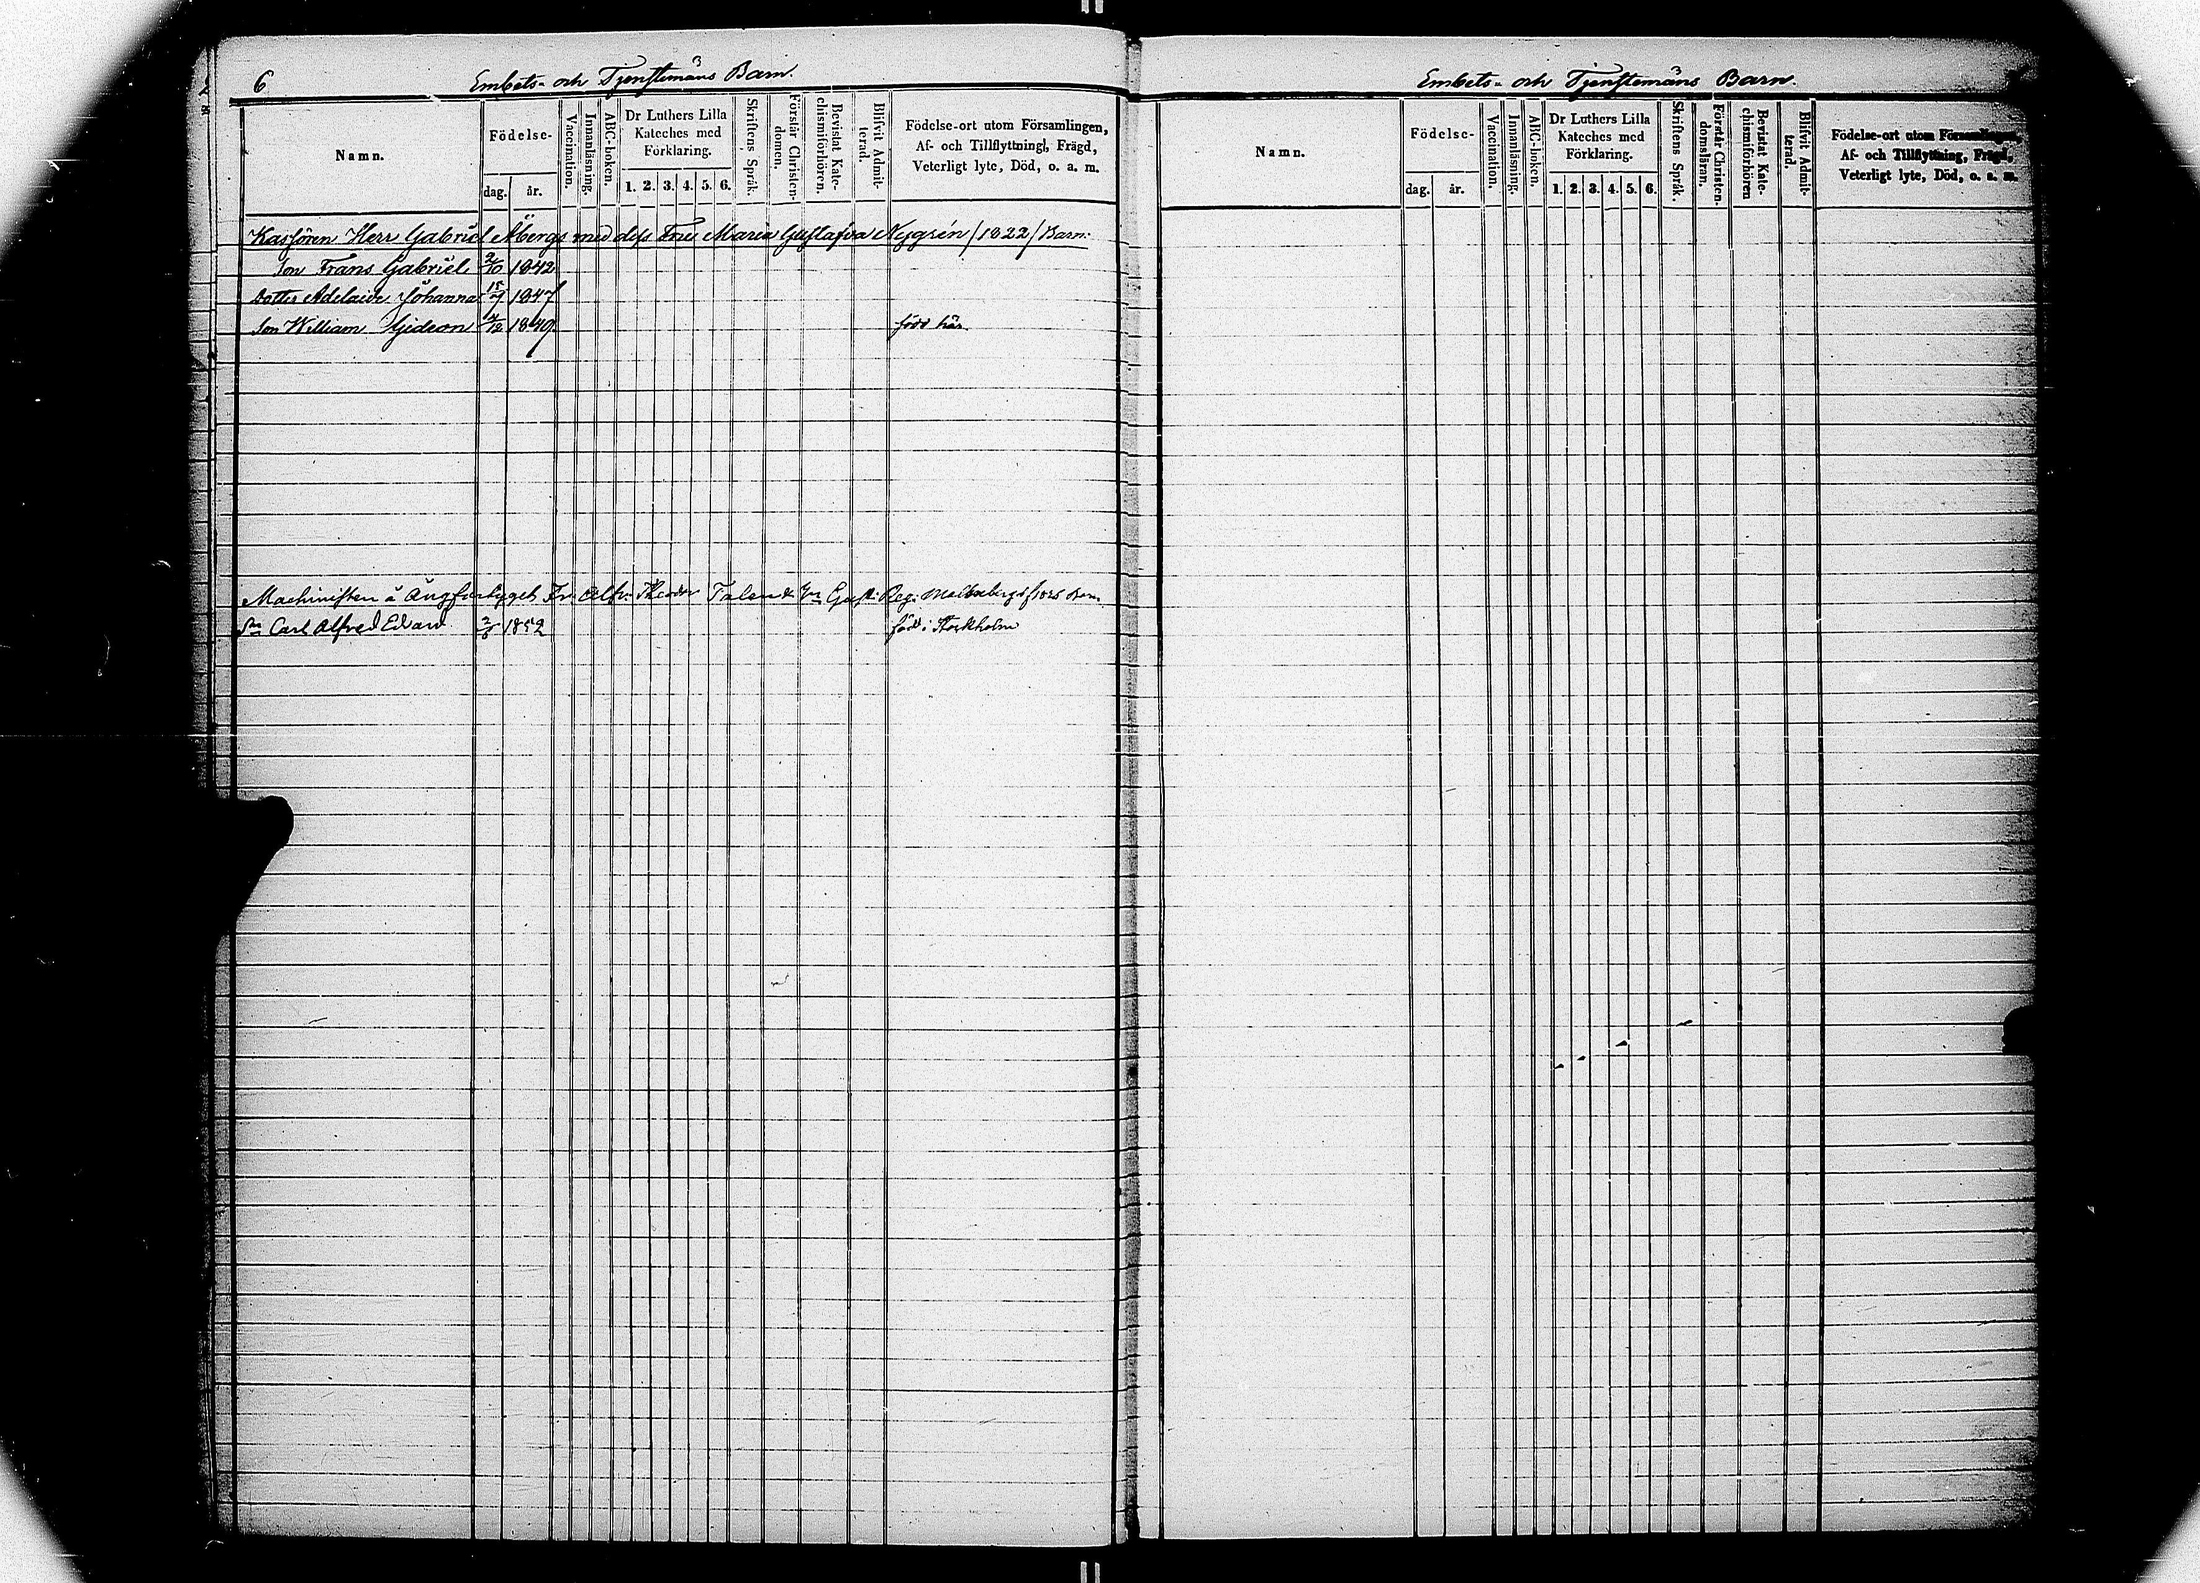 6
Embets- och Tjenstemäns Barn.
Namn.
Födelse-
dag. år.
Vaccination.
Innanläsning.
ABC-boken.
Dr Luthers Lilla
Kateches med
Förklaring.
1. 2. 3. 4. 5. 6.
Skriftens Språk.
Förstår Christen-
domen.
Bevistat Kate-
chismiförhören.
Blifvit Admit-
terad.
Födelse-ort utom Församlingen,
Af- och Tillflyttning, Frägd,
Veterligt lyte, Död, o. a. m.
Kassören Herr Gabriel Åbergs med dess Fru Maria Gustafva Nygrén /1822/ Barn:
Son Frans Gabriel 2/10 1842
Dotter Adelaide Johanna 15/7 1847
Son William Gideon 4/12 1849 född här
Machinisten å Ångfartyget Fr: Theodor Barn
Sn Carl Alfred Edvard 1852 född i Stockholm
Embets- och Tjenstemäns Barn.
Namn.
Födelse-
dag. år.
Vaccination.
Innanläsning.
ABC-boken.
Dr Luthers Lilla
Kateches med
Förklaring.
1. 2. 3. 4. 5. 6.
Skriftens Språk.
Förstår Christen-
domsläran.
Bevistat Kate-
chismiförhören
Blifvit Admit-
terad.
Födelse-ort utom Församlingen,
Af- och Tillflyttning, Frägd,
Veterligt lyte, Död, o. a. m.